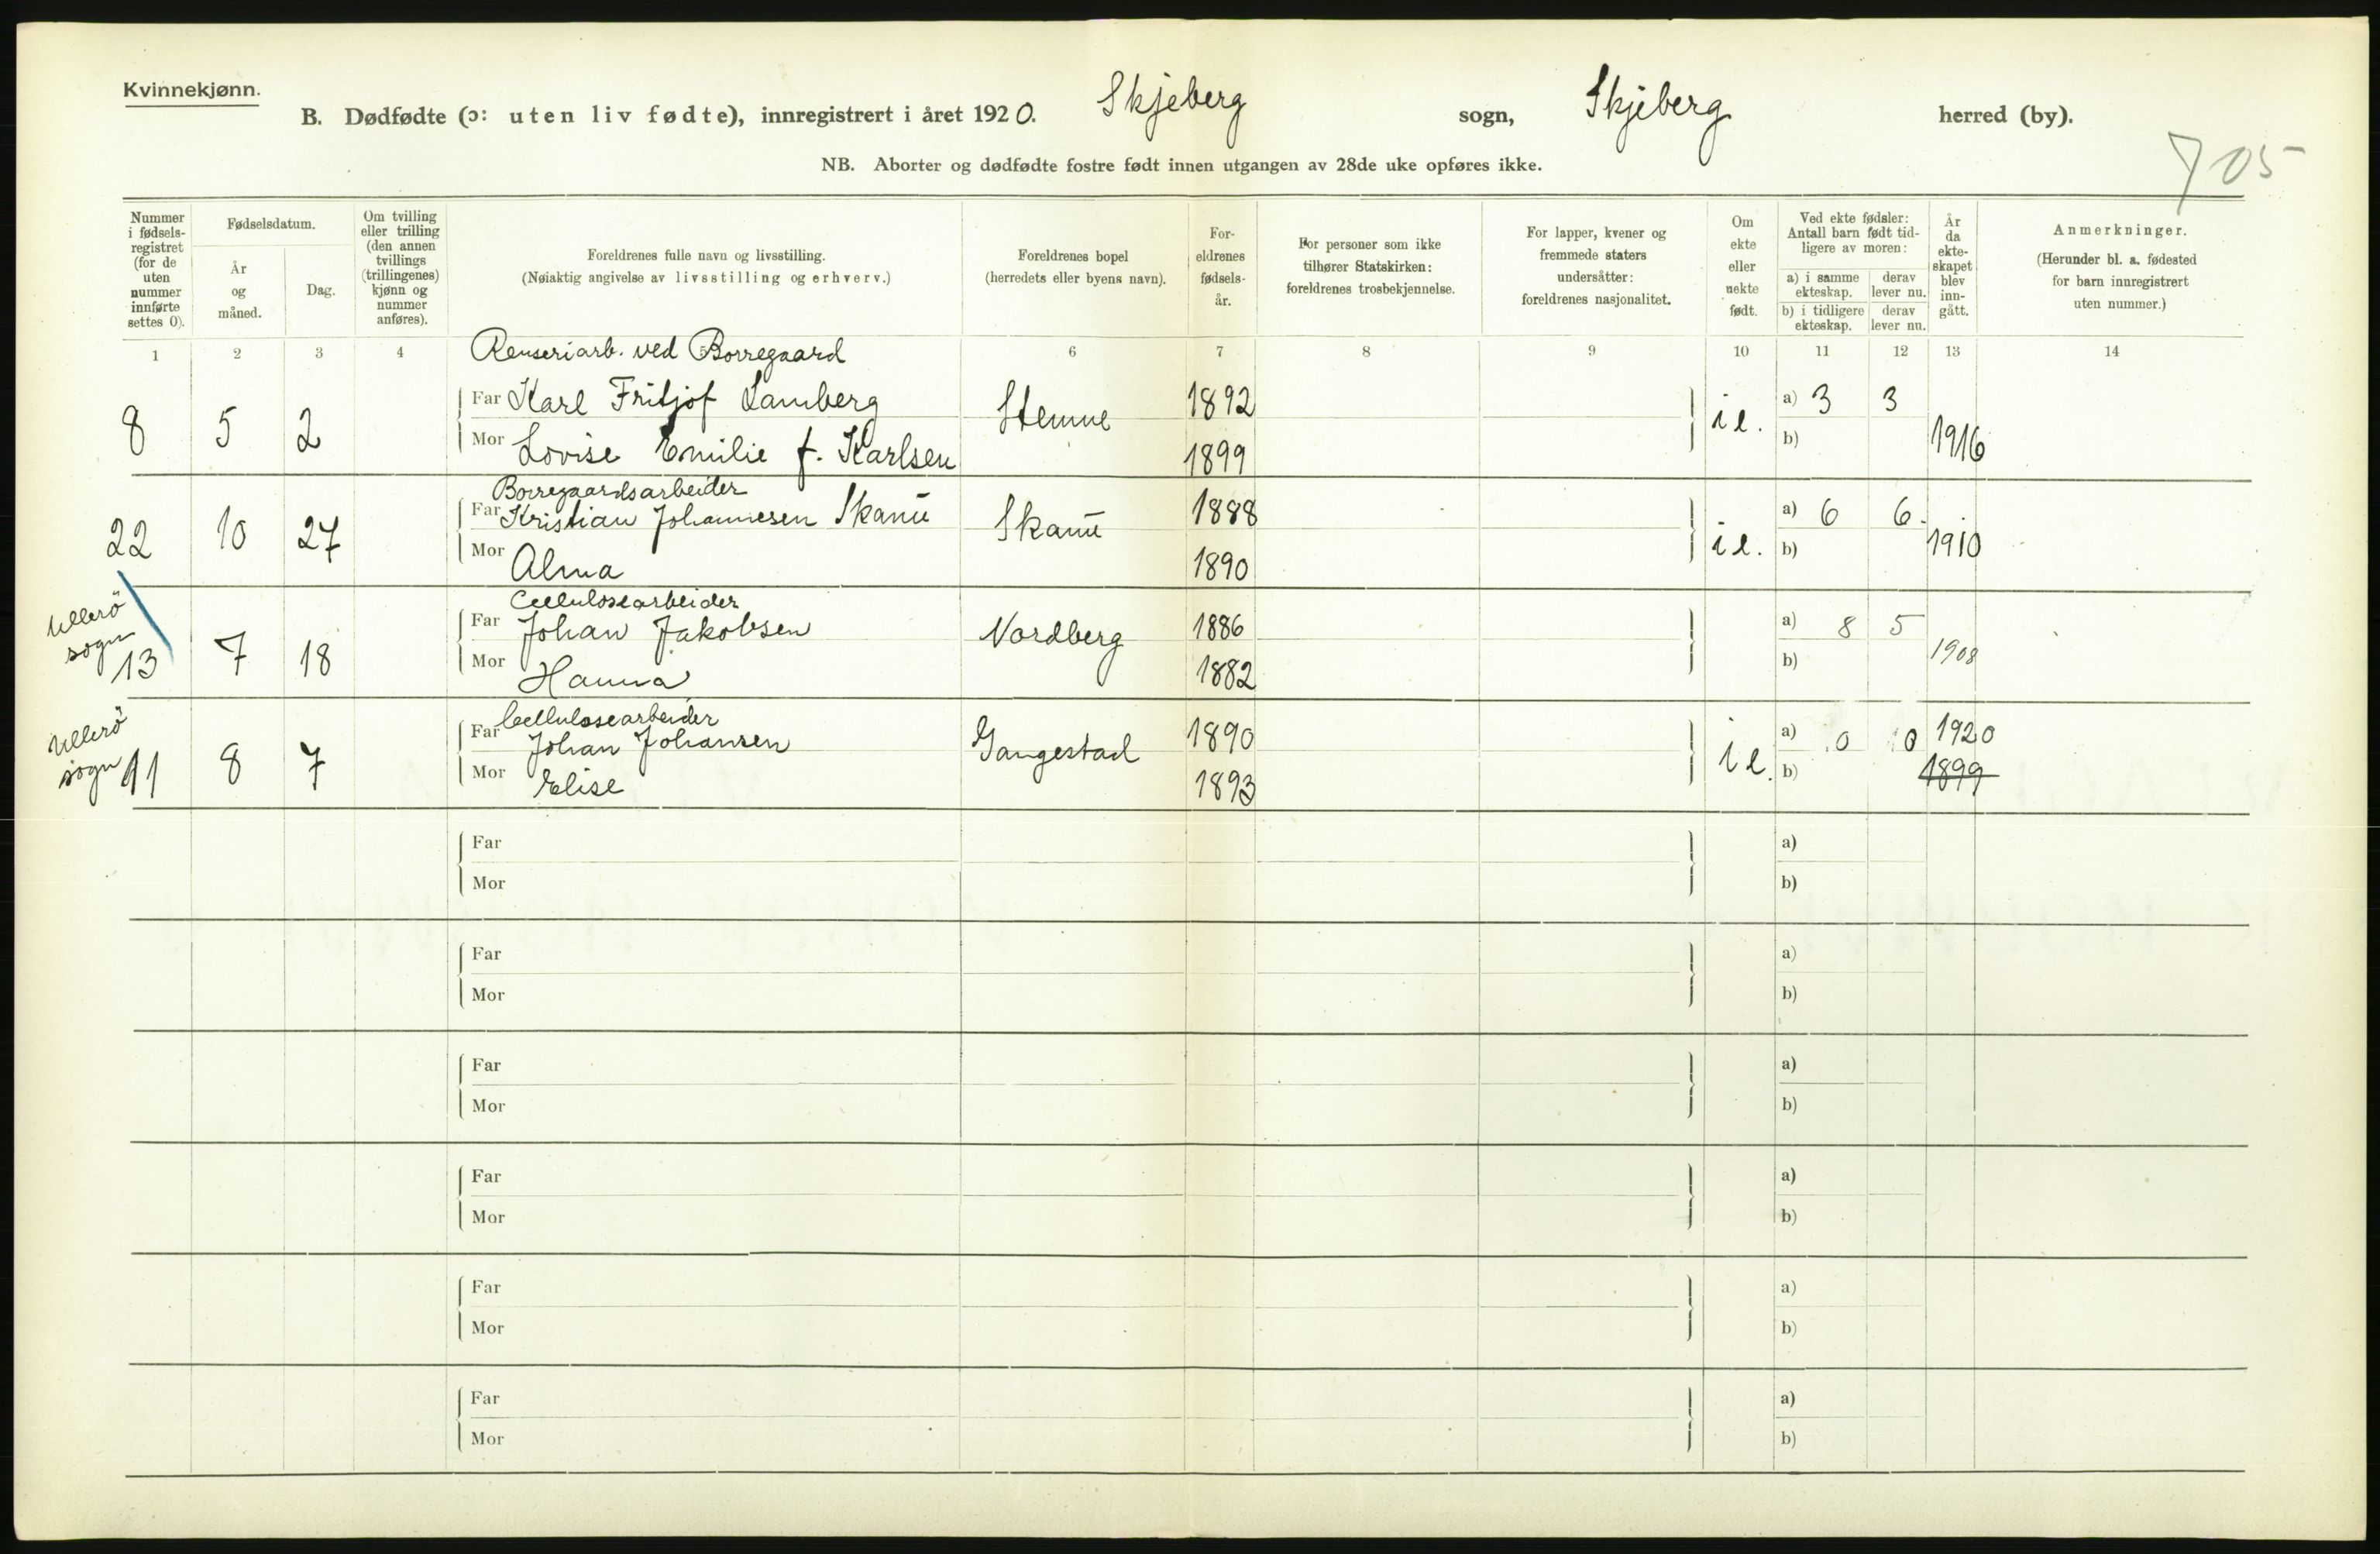 Kvinnekjønn.
B. Dødfødte (ɔ: uten liv fødte), innregistrert i året 1920. Skjeberg sogn, Skjeberg herred (by).
NB. Aborter og dødfødte fostre født innen utgangen av 28de uke opføres ikke.
705
Nummer i fødsels-registret (for de uten nummer innførte settes 0).
Fødselsdatum.
År og måned.
Dag.
Om tvilling eller trilling (den annen tvillings (trillingenes) kjønn og nummer anføres).
Foreldrenes fulle navn og livsstilling.
(Nøiaktig angivelse av livsstilling og erhverv.)
Foreldrenes bopel
(herredets eller byens navn).
For-eldrenes fødsels-år.
For personer som ikke tilhører Statskirken: foreldrenes trosbekjennelse.
For lapper, kvener og fremmede staters undersåtter: foreldrenes nasjonalitet.
Om ekte eller uekte født.
Ved ekte fødsler: Antall barn født tid-ligere av moren:
a) i samme ekteskap.
derav lever nu.
b) i tidligere ekteskap.
derav lever nu.
År da ekte-skapet blev inn-gått.
Anmerkninger.
(Herunder bl. a. fødested for barn innregistrert uten nummer.)
1 2 3 4 5 6 7 8 9 10 11 12 13 14
Renseriarb. ved Borregaard
8 5 2 Far Karl Fritjof Lamberg Stemne 1892 i e. a) 3 3 1916
Mor Lovise Emilie f. Karlsen 1899 b)
Borregaardsarbeider
22 10 27 Far Kristian Johannesen Skanü Skanü 1888 i e. a) 6 6. 1910
Mor Alma 1890 b)
Cellulosearbeider
Ullerö sogn 13 7 18 Far Johan Jakobsen Nordberg 1886 a) 8 5 1908
Mor Hanna 1882 b)
Cellulosearbeider
Ullerö sogn 11 8 7 Far Johan Johansen Gangestad 1890 i e. a) 0 0 1920
Mor Elise 1893 b) 1899
Far a)
Mor b)
Far a)
Mor b)
Far a)
Mor b)
Far a)
Mor b)
Far a)
Mor b)
Far a)
Mor b)